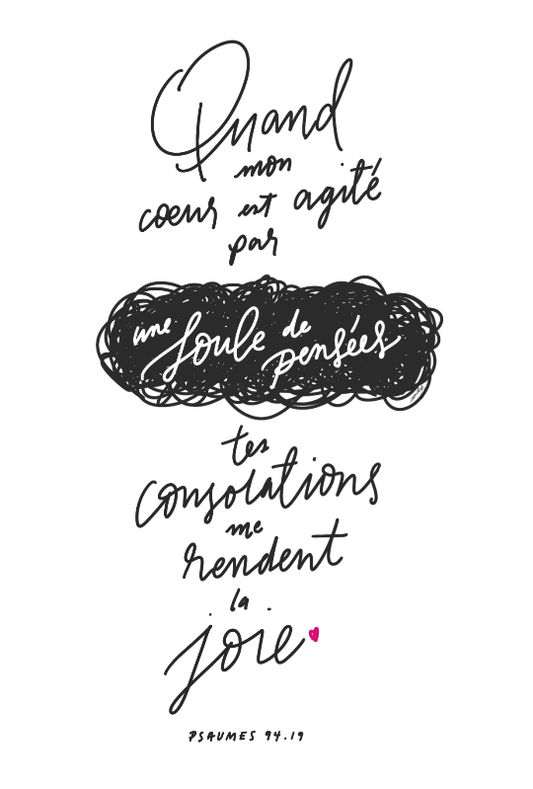 Quand
mon
cœur est agité
par
une foule de pensées
tes
consolations
me
rendent
la
joie
PSAUMES 94.19